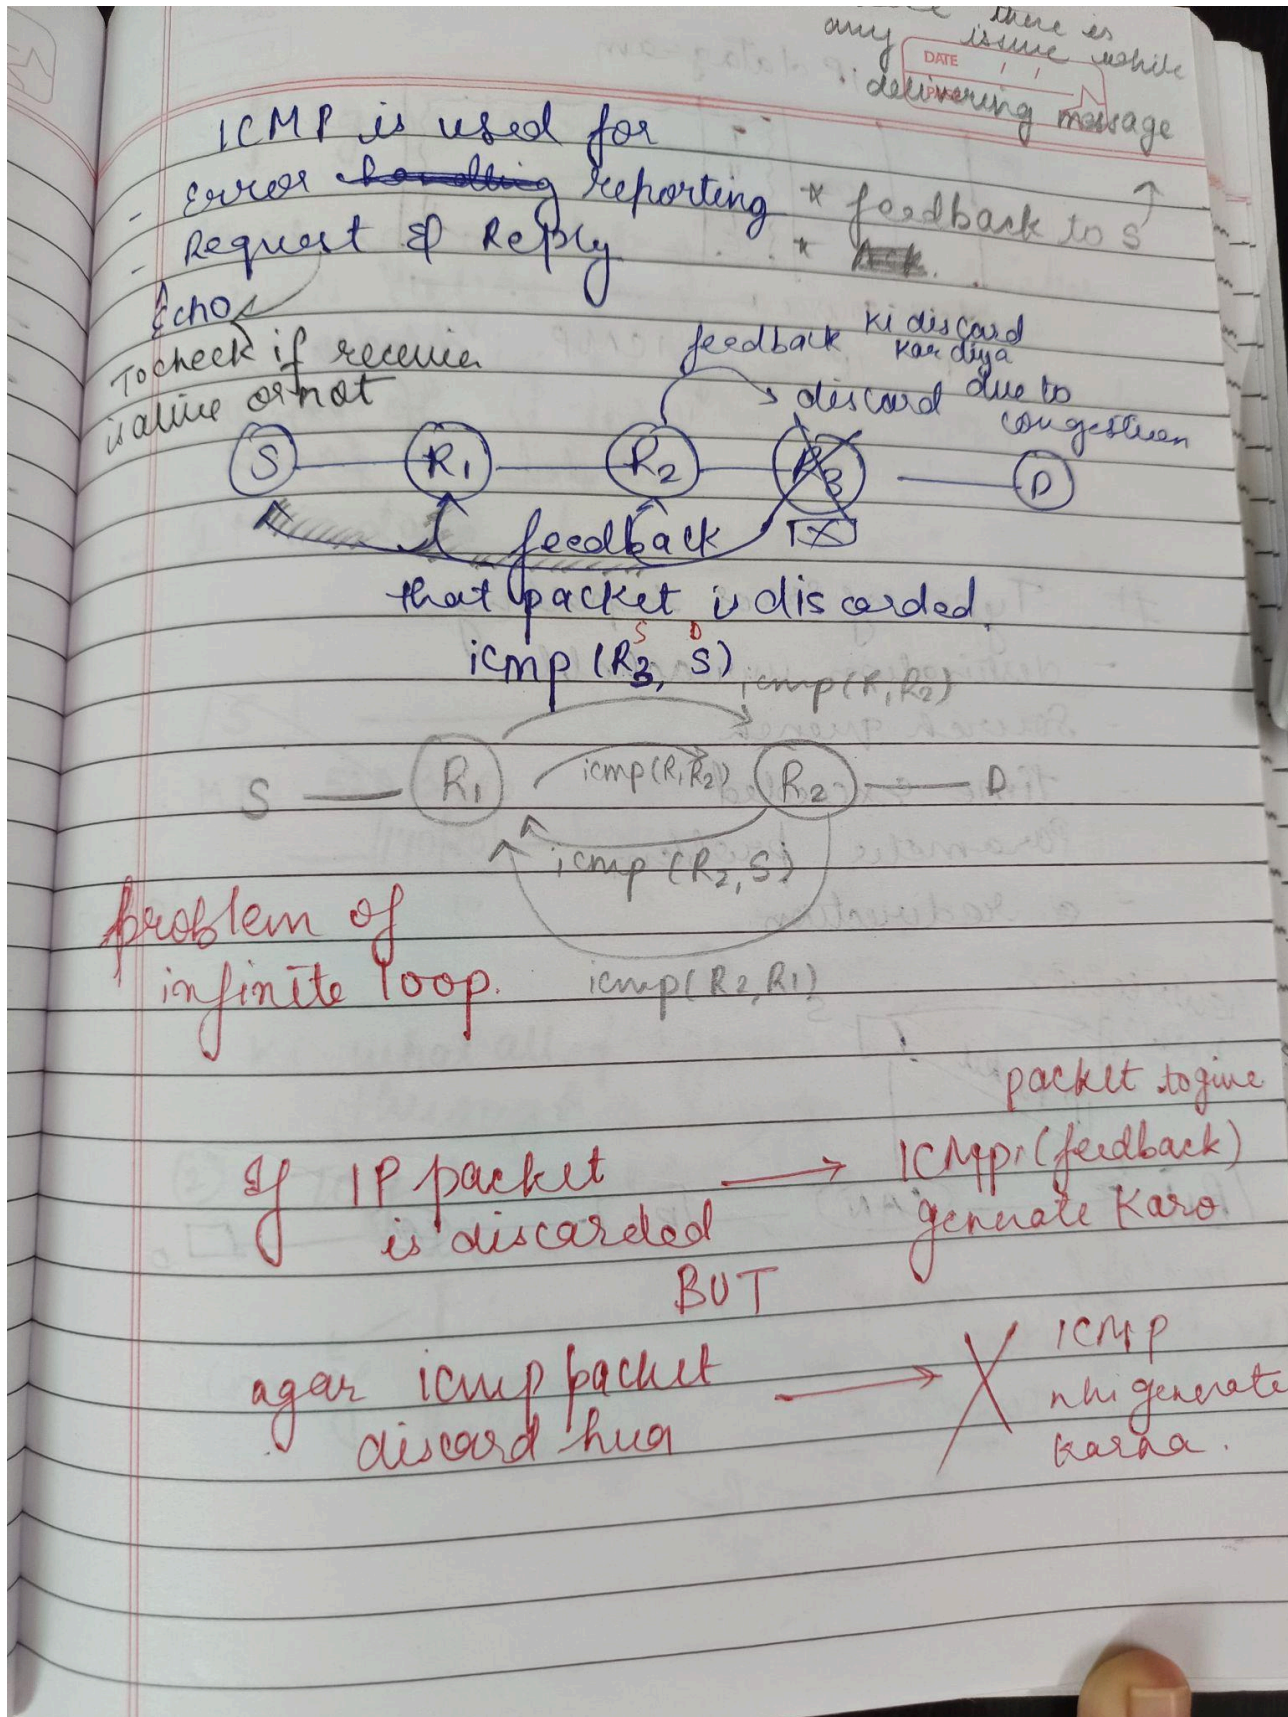 there is
any issue while
DATE / /
delivering message
ICMP is used for
- Error reporting * feedback to S
- Request & Reply * Ack.
Echo
To check if receiver
is alive or not
feedback ki discard
kar diya
discard due to
congestion
S R1 R2 R3 D
feedback
that packet is discarded.
S D
icmp (R3, S)
icmp(R1,R2)
S R1 icmp(R1,R2) R2 D
icmp (R2,S)
Problem of
infinite loop.
icmp(R2,R1)
packet to give
If IP packet → ICMP (feedback)
is discarded generate Karo
BUT
agar icmp packet → X ICMP
discard hua nhi generate
karna.